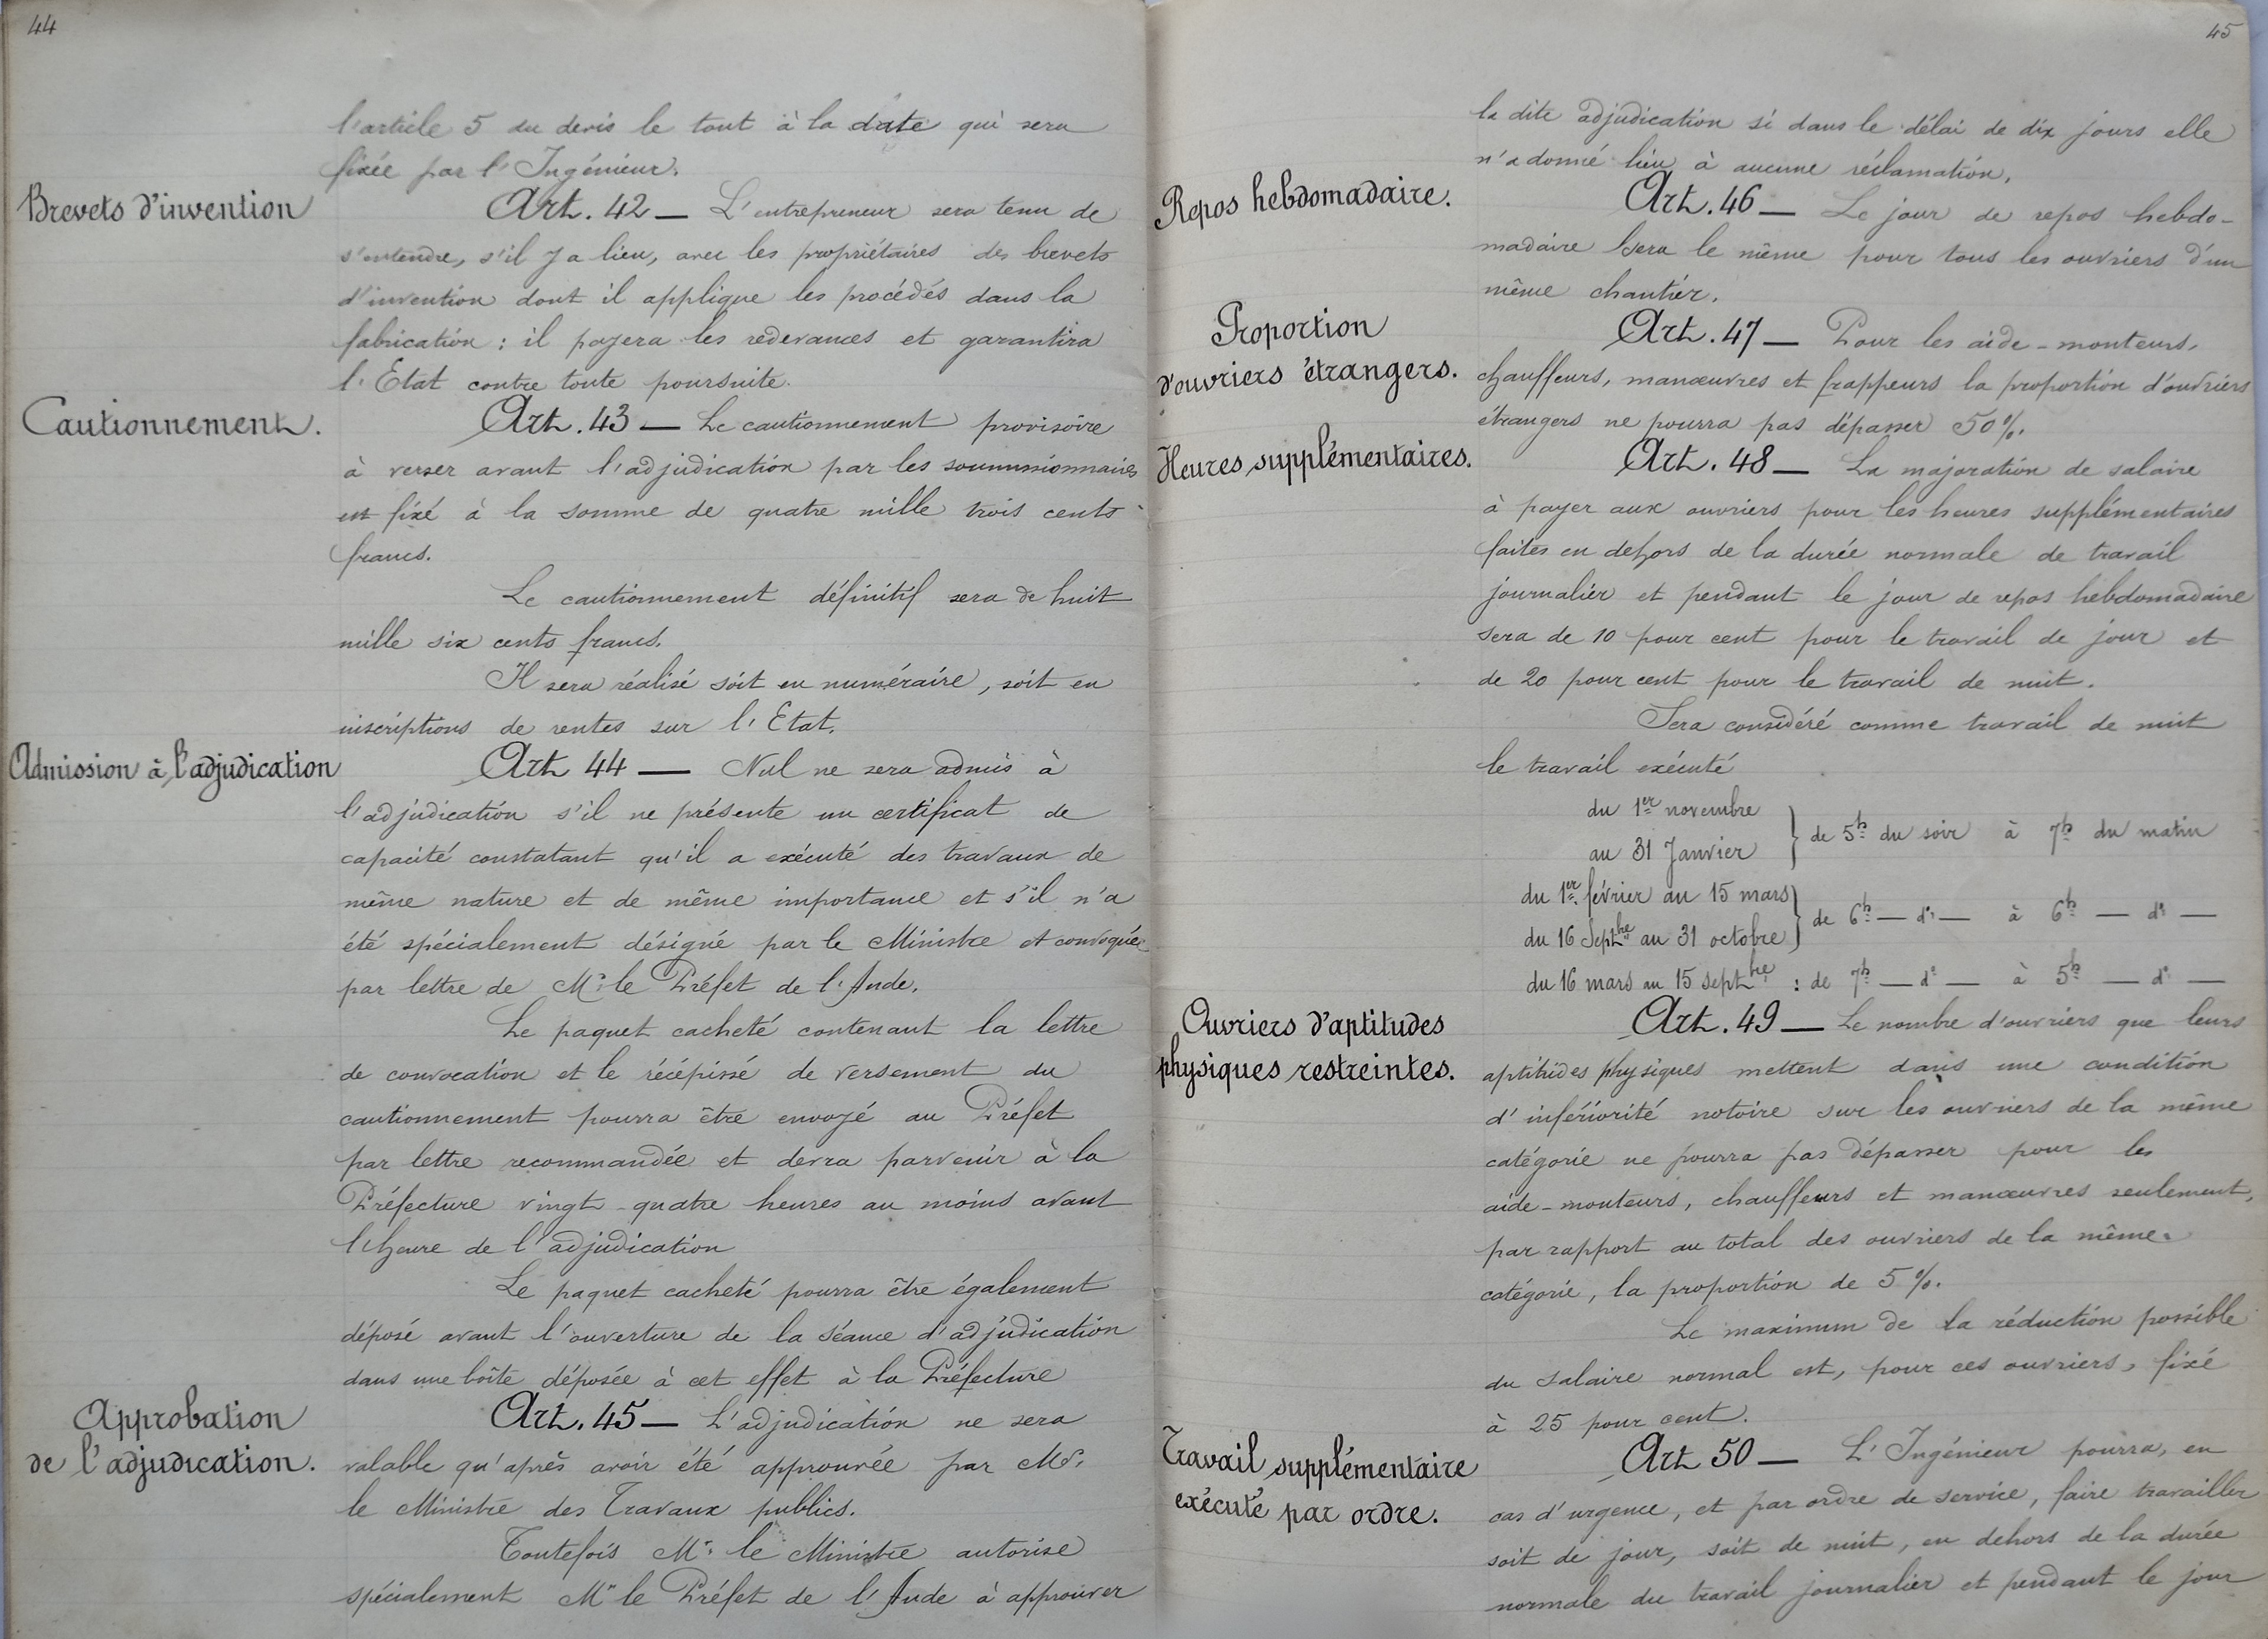 44
l'article 5 du devis le tout à la date qui sera
fixée par l'Ingénieur.
Brevets d'invention
Art. 42 — L'entrepreneur sera tenu de
s'entendre, s'il y a lieu, avec les propriétaires des brevets
d'invention dont il applique les procédés dans la
fabrication : il payera les redevances et garantira
l'Etat contre toute poursuite.
Cautionnement.
Art. 43 — Le cautionnement provisoire
à verser avant l'adjudication par les soumissionnaires
est fixé à la somme de quatre mille trois cents
francs.
Le cautionnement définitif sera de huit
mille six cents francs.
Il sera réalisé soit en numéraire, soit en
inscriptions de rentes sur l'Etat.
Admission à l'adjudication
Art 44 — Nul ne sera admis à
l'adjudication s'il ne présente un certificat de
capacité constatant qu'il a exécuté des travaux de
même nature et de même importance et s'il n'a
été spécialement désigné par le Ministre et convoqué
par lettre de Mr. le Préfet de l'Aude.
Le paquet cacheté contenant la lettre
de convocation et le récépissé de versement du
cautionnement pourra être envoyé au Préfet
par lettre recommandée et devra parvenir à la
Préfecture vingt-quatre heures au moins avant
l'heure de l'adjudication
Le paquet cacheté pourra être également
déposé avant l'ouverture de la séance d'adjudication
dans une boîte déposée à cet effet à la Préfecture
Approbation
de l'adjudication.
Art. 45 — L'adjudication ne sera
valable qu'après avoir été approuvée par Mr.
le Ministre des Travaux publics.
Toutefois Mr. le Ministre autorise
spécialement Mr le Préfet de l'Aude à approuver
45
la dite adjudication si dans le délai de dix jours elle
n'a donné lieu à aucune réclamation.
Repos hebdomadaire.
Art. 46 — Le jour de repos hebdo-
madaire sera le même pour tous les ouvriers d'un
même chantier.
Proportion
d'ouvriers étrangers.
Art. 47 — Pour les aide-monteurs,
chauffeurs, manœuvres et frappeurs la proportion d'ouvriers
étrangers ne pourra pas dépasser 50%.
Heures supplémentaires.
Art. 48 — La majoration de salaire
à payer aux ouvriers pour les heures supplémentaires
faites en dehors de la durée normale de travail
journalier et pendant le jour de repos hebdomadaire
sera de 10 pour cent pour le travail de jour et
de 20 pour cent pour le travail de nuit.
Sera considéré comme travail de nuit
le travail exécuté
du 1er novembre
au 31 Janvier } de 5h du soir à 7h du matin
du 1er février au 15 mars
du 16 Septbre au 31 octobre } de 6h — do — à 6h — do —
du 16 mars au 15 septbre : de 7h — do — à 5h — do —
Ouvriers d'aptitudes
physiques restreintes.
Art. 49 — Le nombre d'ouvriers que leurs
aptitudes physiques mettent dans une condition
d'infériorité notoire sur les ouvriers de la même
catégorie ne pourra pas dépasser pour les
aide-monteurs, chauffeurs et manœuvres seulement,
par rapport au total des ouvriers de la même
catégorie, la proportion de 5%.
Le maximum de la réduction possible
du salaire normal est, pour ces ouvriers, fixé
à 25 pour cent.
Travail supplémentaire
exécuté par ordre.
Art 50 — L'Ingénieur pourra, en
cas d'urgence, et par ordre de service, faire travailler
soit de jour, soit de nuit, en dehors de la durée
normale du travail journalier et pendant le jour